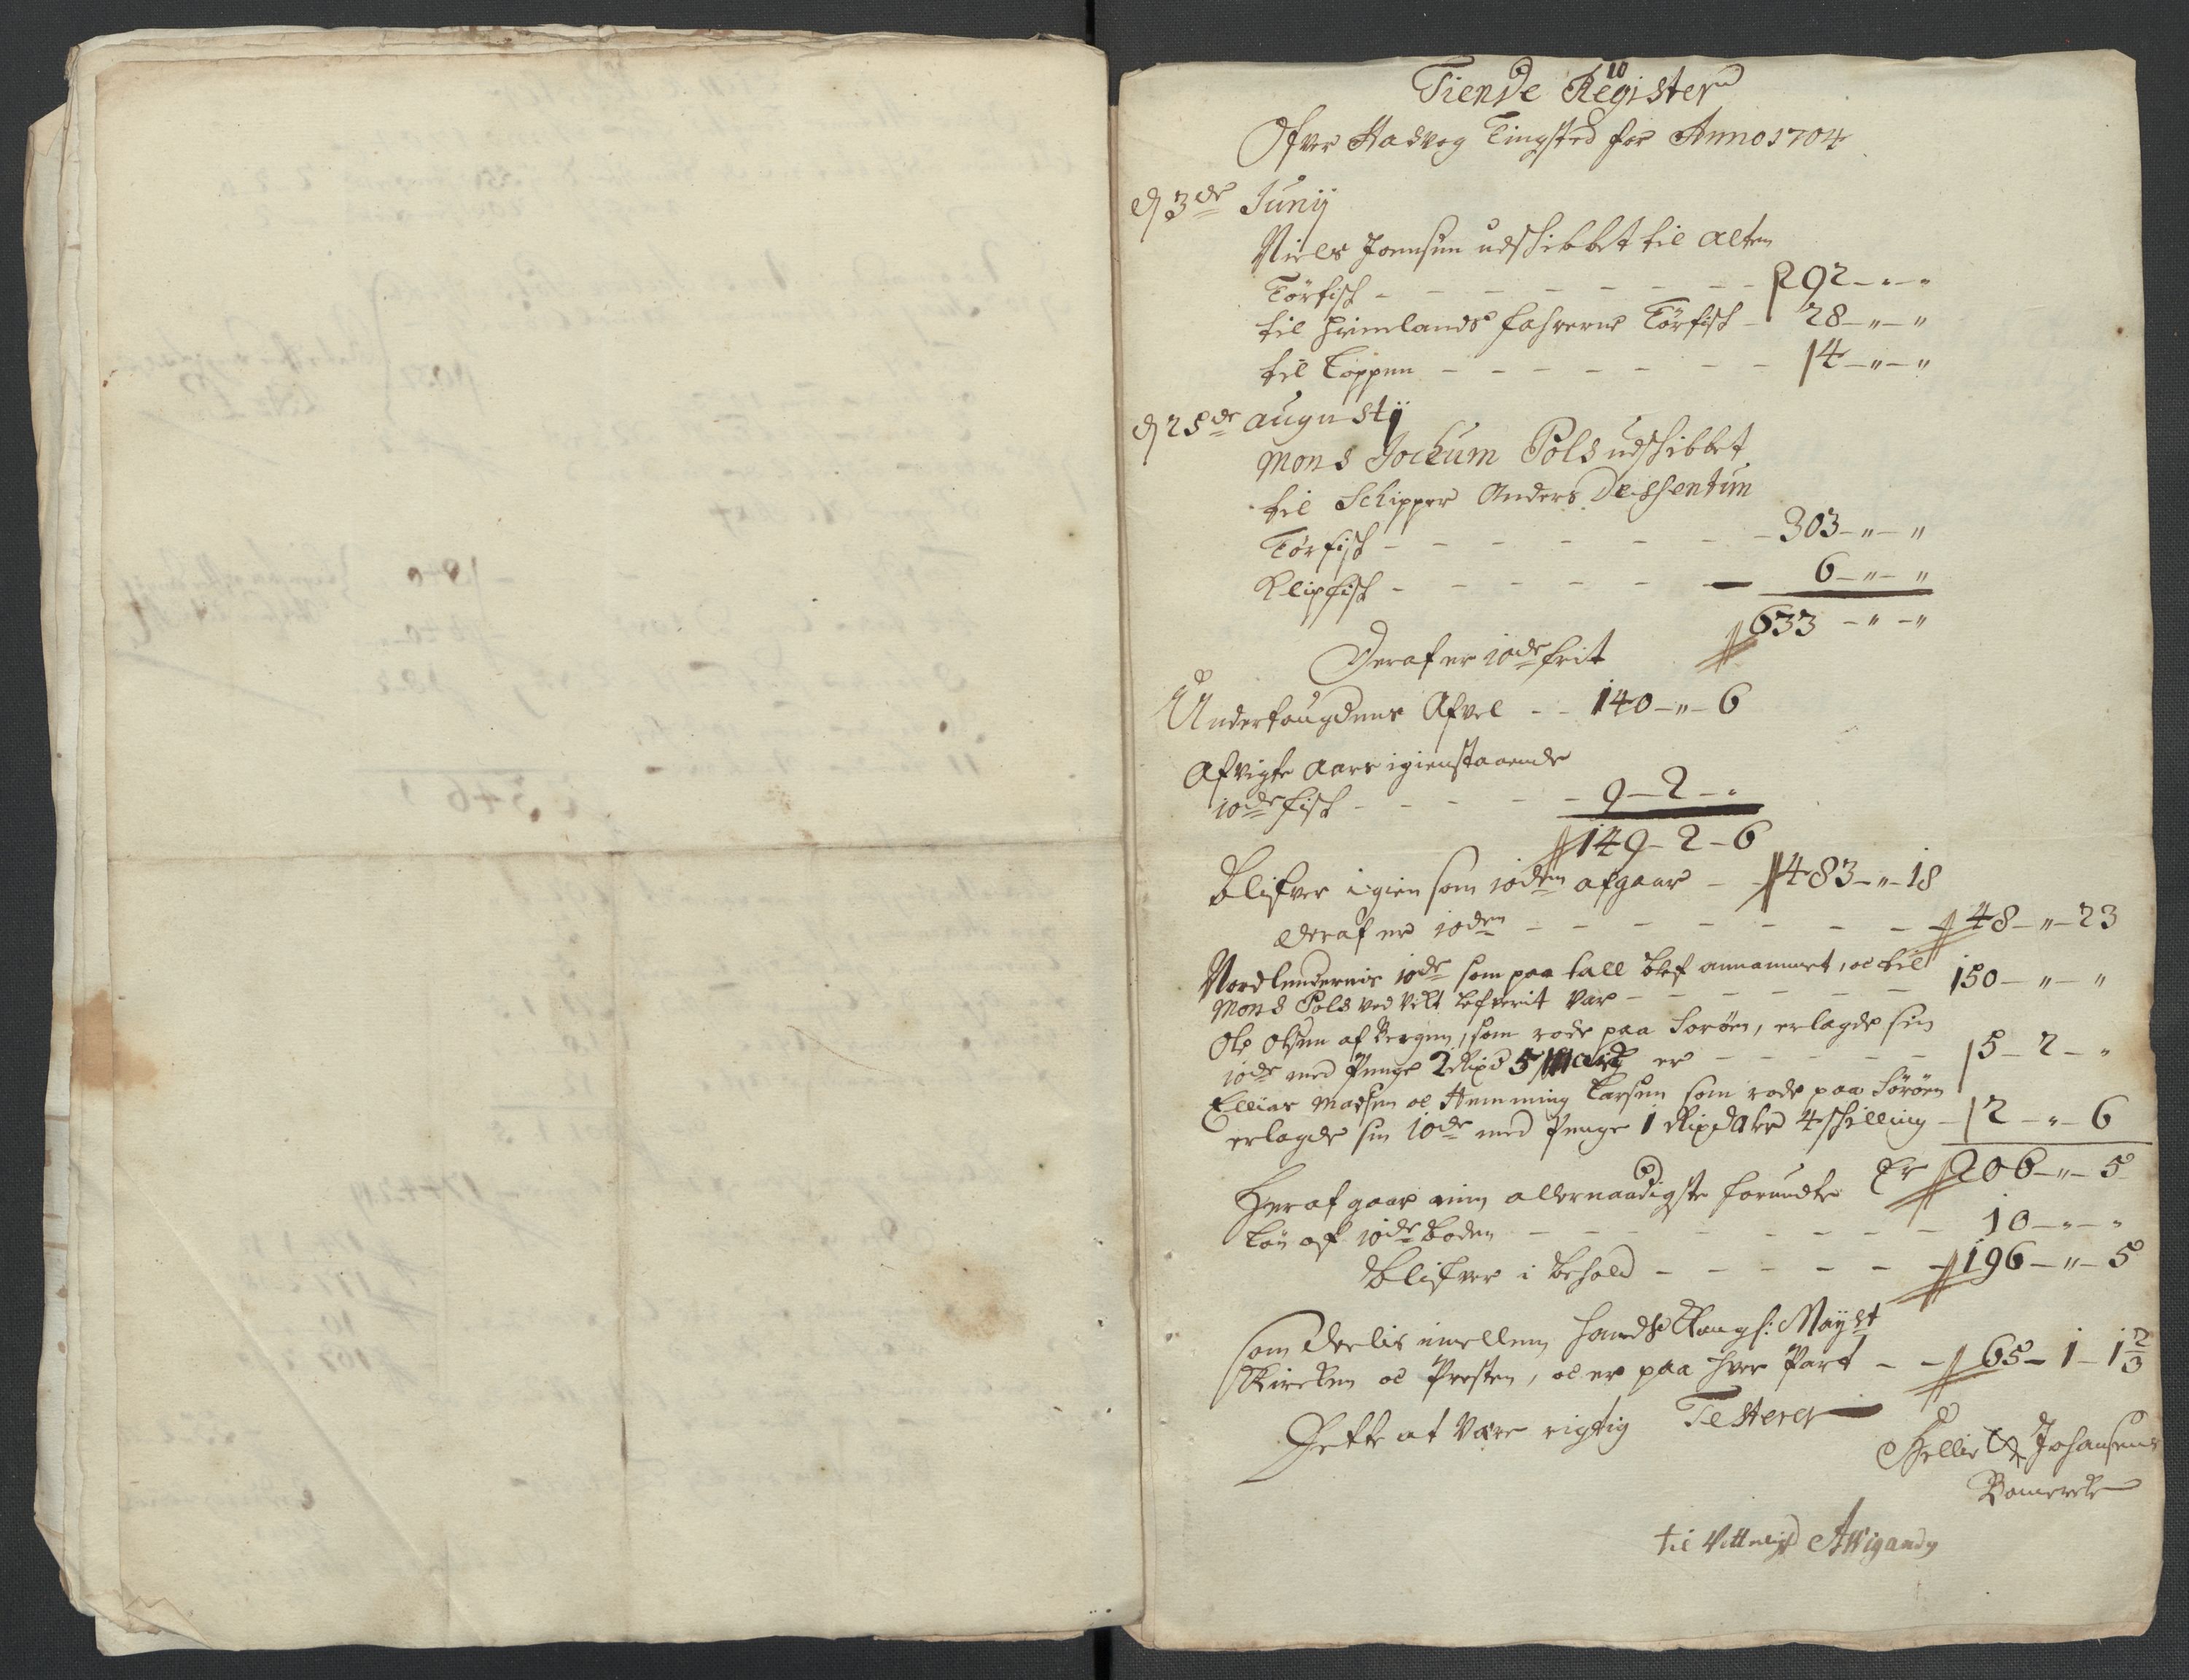 10
Tiende Register
Ofver Hasvog Tingsted for Anno 1704
d 3de Junij
Niels Joensen udskibbet til Alten
Tørfisk - - - - - - - - 292 - " - "
til Fimelands fahrerne Tørfisk - 28 - " - "
til Toppen - - - - - - - 14 - " - "
d 25de Augustij
Mons Jockum Pols udskibbet
til Schipper Anders
Tørfisk - - - - - - - 303 - " - "
Klipfisk - - - - - - 6 - " - "
633 - " - "
Deraf er 10de frit
Underfougdens Afvel - - 140 - " - 6
Afvigte Aars igienstaaende
10de fisk - - - - - 9 - 2 - "
149 - 2 - 6
Blifver igien som 10den afgaar - - 483 - " - 18
deraf er 10den - - - - - - - - 48 - " - 23
Nordlendernis 10de som paa tall blef annammet, oc til
Mons Pols ved vekt lefverit var - - - - - - 150 - " - "
Ole Olsen af Bergen, som rode paa Sorøen, erlagde sin
10de med Penge 2 Rixd 5 Marck er - - - - - 5 - 2 - "
Ellias Madsen oc Hemming Larsen som rode paa Sørøen
erlagde sin 10de med Penge 1 Rixdaler 4 skilling - 2 - " - 6
Er 206 - " - 5
Heraf gaar min allernaadigste forundte
Løn af 10de boden - - - - - - - - 10 - " - "
Blifver i behold - - - - - - 196 - " - 5
som deelis imellem hands Kongl: Mayst
Kircken oc Presten, oc er paa hver Part - - 65 - 1 - 1 2/3
Dette at være rigtig Testerer
Hellie Johansens
Bomercke
til Vittnighd AWigandy